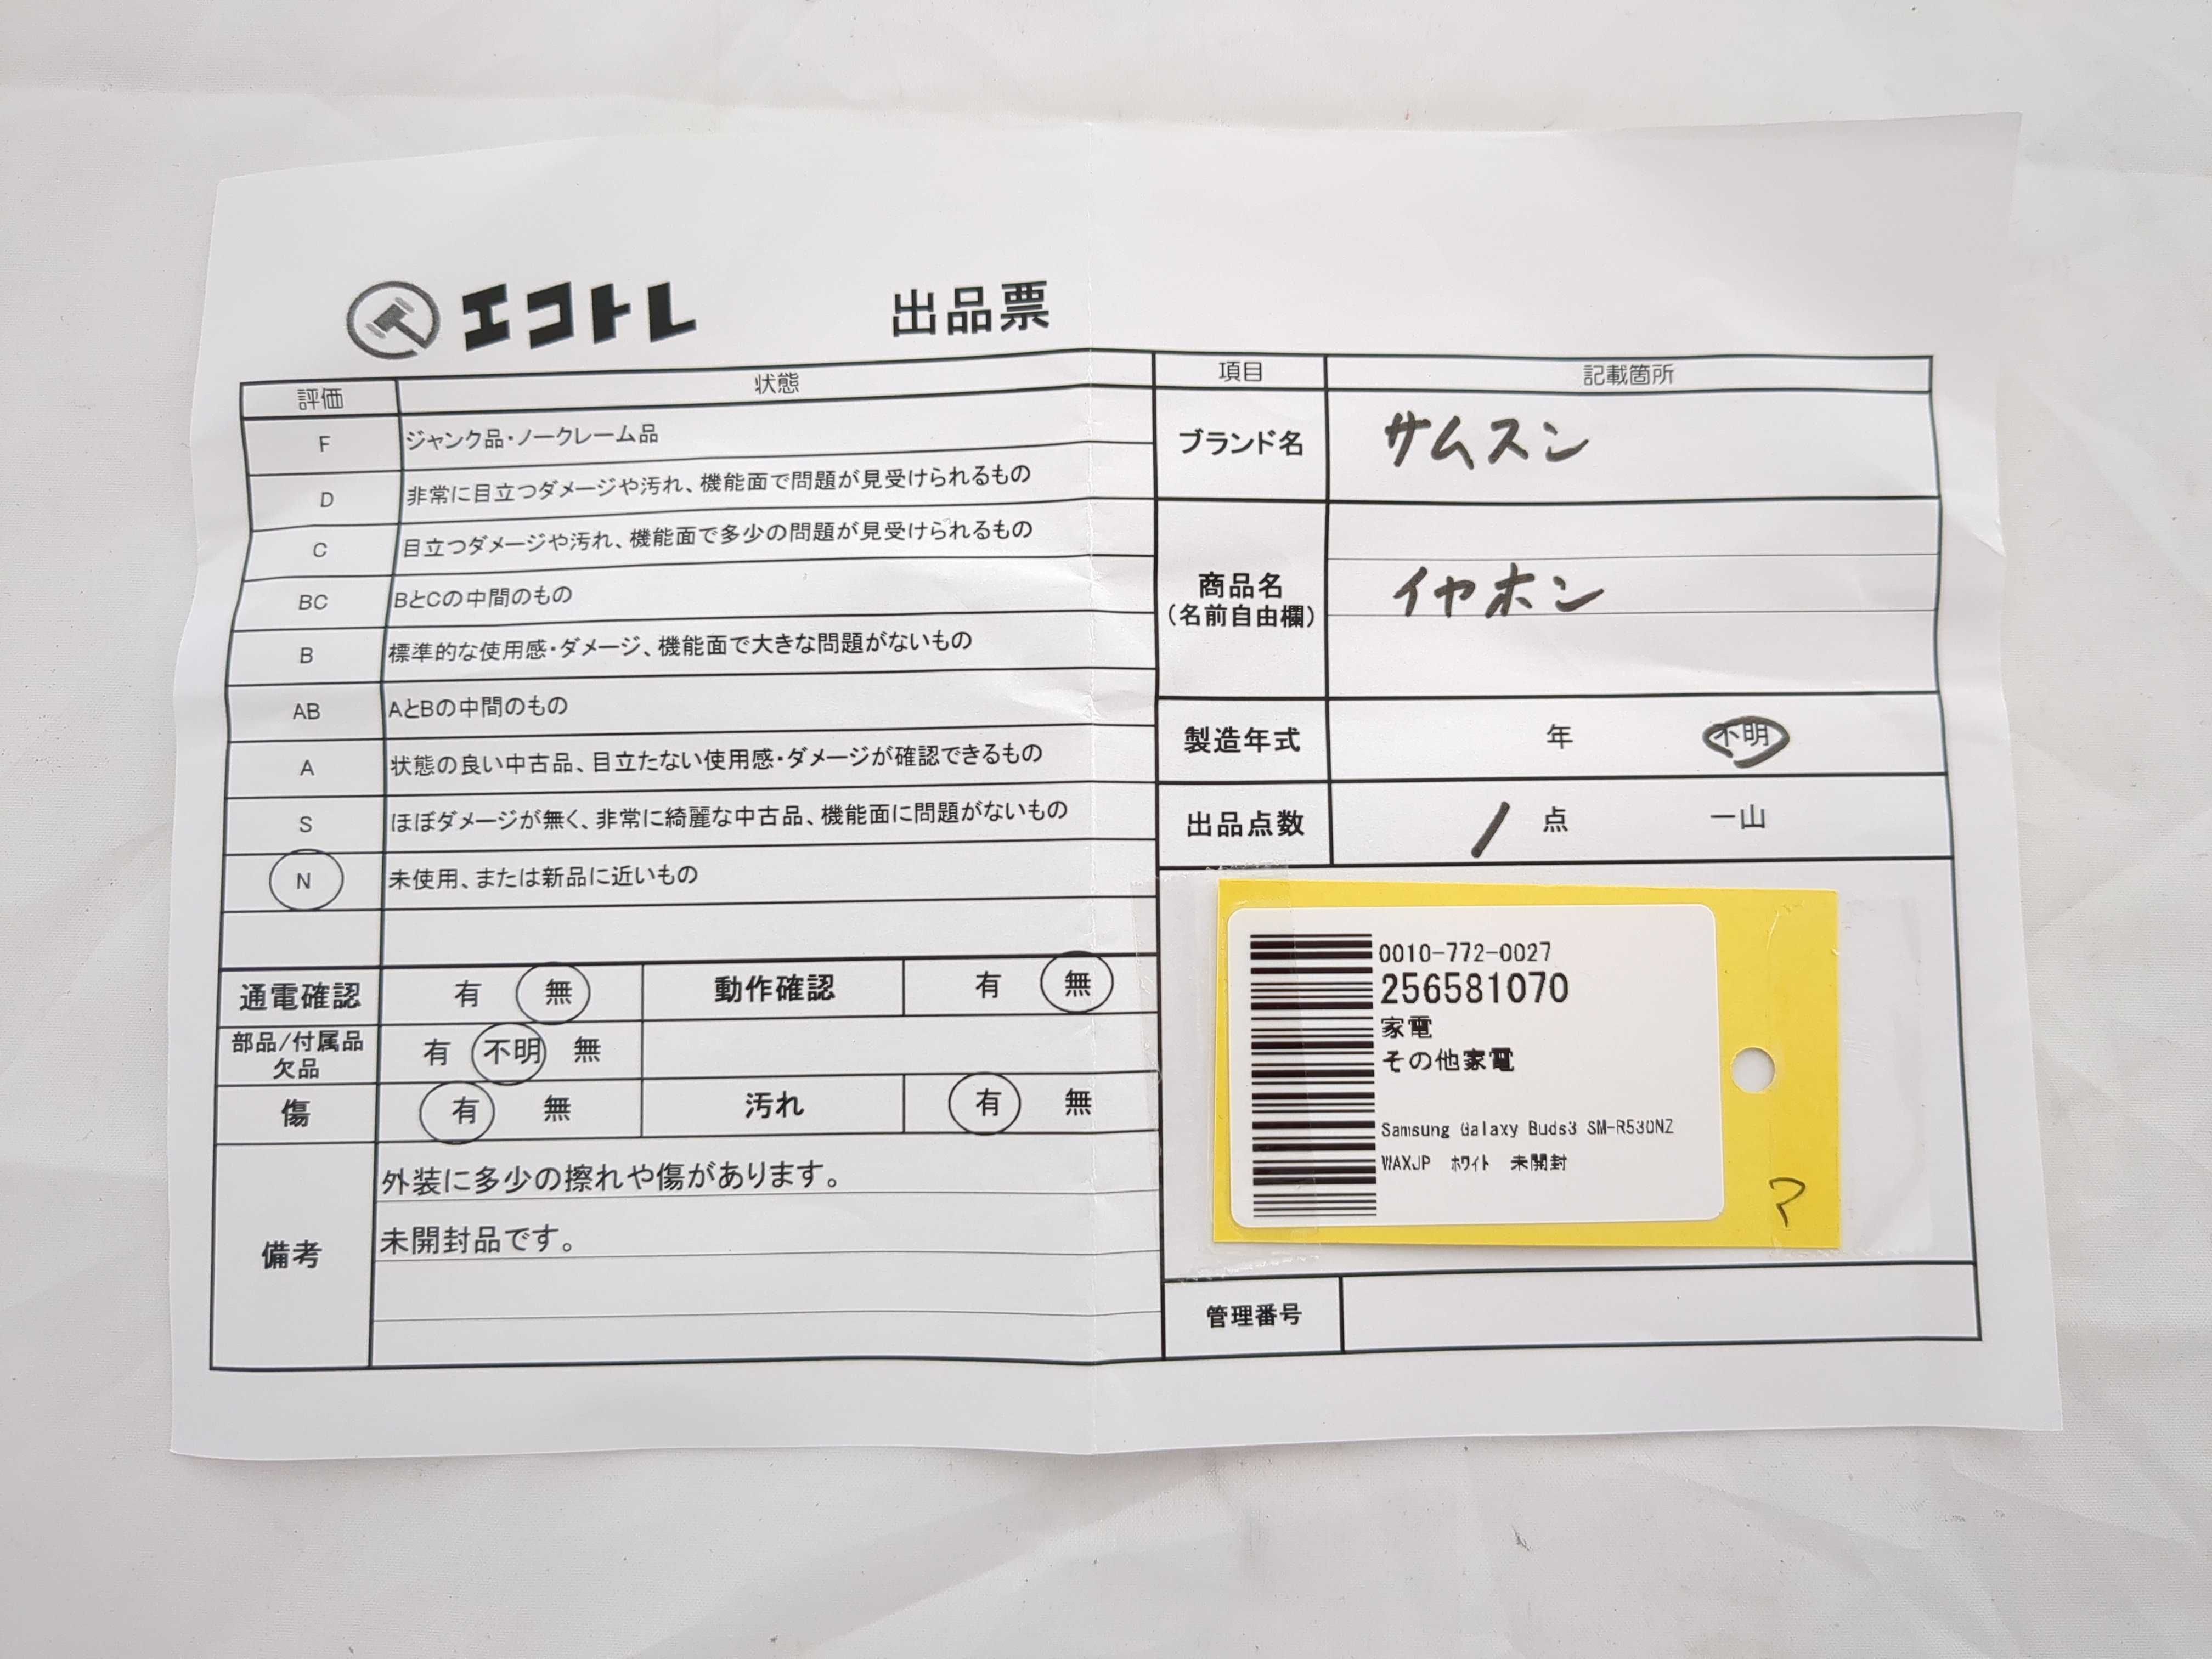 エコトレ 出品票
評価 状態
F ジャンク品・ノークレーム品
D 非常に目立つダメージや汚れ、機能面で問題が見受けられるもの
C 目立つダメージや汚れ、機能面で多少の問題が見受けられるもの
BC BとCの中間のもの
B 標準的な使用感・ダメージ、機能面で大きな問題がないもの
AB AとBの中間のもの
A 状態の良い中古品、目立たない使用感・ダメージが確認できるもの
S ほぼダメージが無く、非常に綺麗な中古品、機能面に問題がないもの
N 未使用、または新品に近いもの
通電確認 有 無 動作確認 有 無
部品/付属品
欠品 有 不明 無
傷 有 無 汚れ 有 無
備考
外装に多少の擦れや傷があります。
未開封品です。
項目 記載箇所
ブランド名 サムスン
商品名
(名前自由欄)
イヤホン
製造年式 年 不明
出品点数 1 点 一山
0010-772-0027
256581070
家電
その他家電
Samsung Galaxy Buds3 SM-R530NZ
WAXJP ﾎﾜｲﾄ 未開封
マ
管理番号